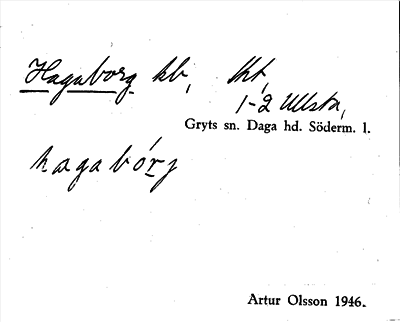 Hagaborg kb, tkt,
1-2 Ullsta,
Gryts sn. Daga hd. Söderm. l.
hagabórj
Artur Olsson 1946.